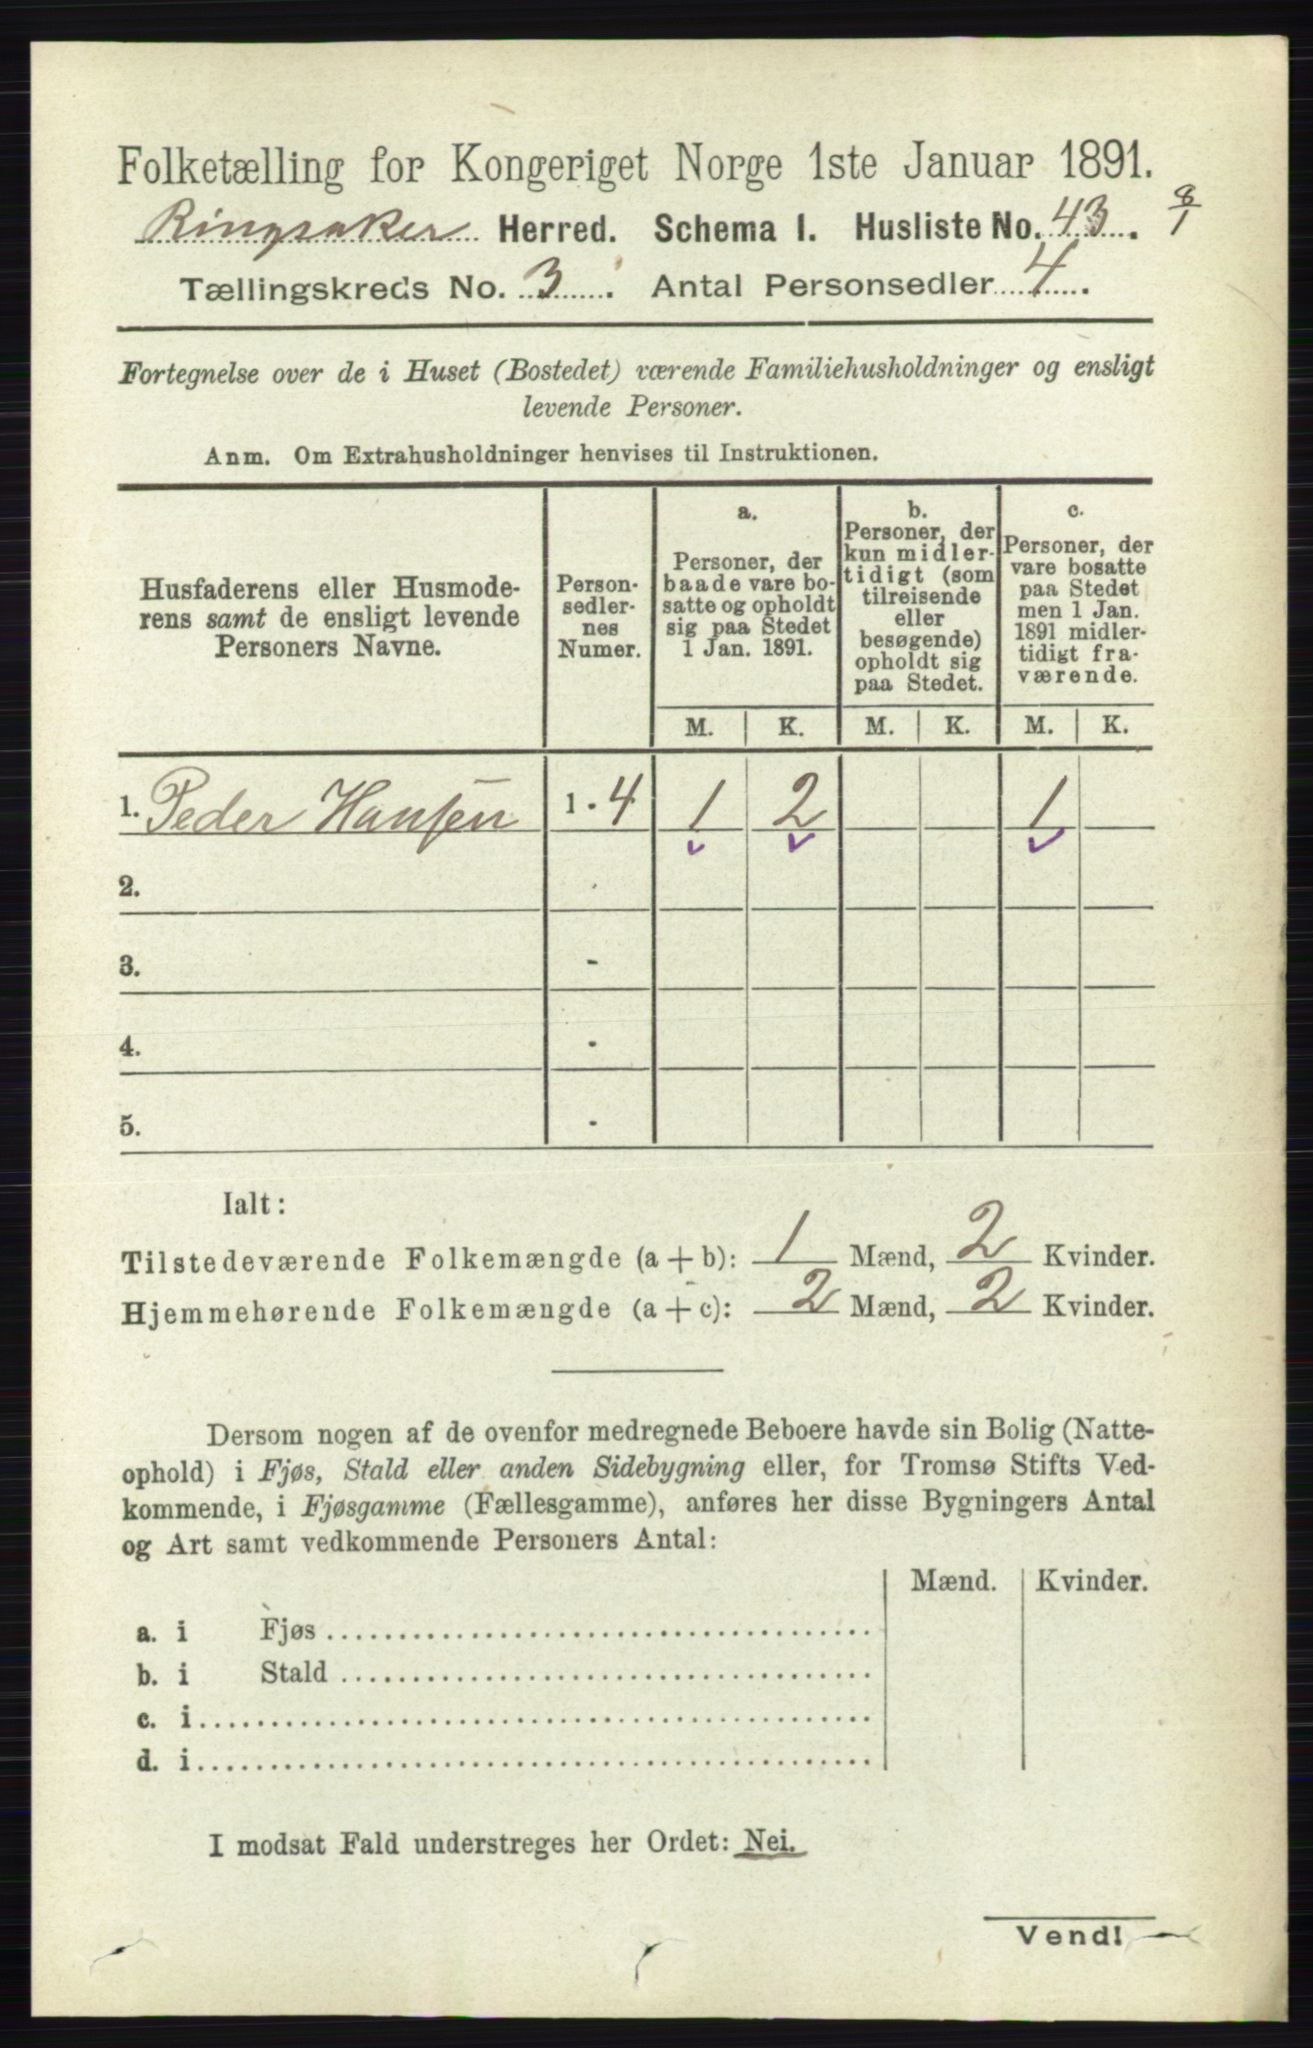 Folketælling for Kongeriget Norge 1ste Januar 1891.
Ringsaker Herred. Schema I. Husliste No. 43. 8/1
Tællingskreds No. 3. Antal Personsedler 4.
Fortegnelse over de i Huset (Bostedet) værende Familiehusholdninger og ensligt
levende Personer.
Anm. Om Extrahusholdninger henvises til Instruktionen.
Husfaderens eller Husmode-
rens samt de ensligt levende
Personers Navne.
Person-
sedler-
nes
Numer.
a.
Personer, der
baade vare bo-
satte og opholdt
sig paa Stedet
1 Jan. 1891.
b.
Personer, der
kun midler-
tidigt (som
tilreisende
eller
besøgende)
opholdt sig
paa Stedet.
c.
Personer, der
vare bosatte
paa Stedet
men 1 Jan.
1891 midler-
tidigt fra-
værende.
M. K. M. K. M. K.
1. Peder Hansen 1 - 4 1 2 1
2. -
3. -
4. -
5. -
Ialt:
Tilstedeværende Folkemængde (a + b): 1 Mænd, 2 Kvinder.
Hjemmehørende Folkemængde (a + c): 2 Mænd, 2 Kvinder.
Dersom nogen af de ovenfor medregnede Beboere havde sin Bolig (Natte-
ophold) i Fjøs, Stald eller anden Sidebygning eller, for Tromsø Stifts Ved-
kommende, i Fjøsgamme (Fællesgamme), anføres her disse Bygningers Antal
og Art samt vedkommende Personers Antal:
Mænd. Kvinder.
a. i Fjøs
b. i Stald
c. i
d. i
I modsat Fald understreges her Ordet: Nei.
Vend!